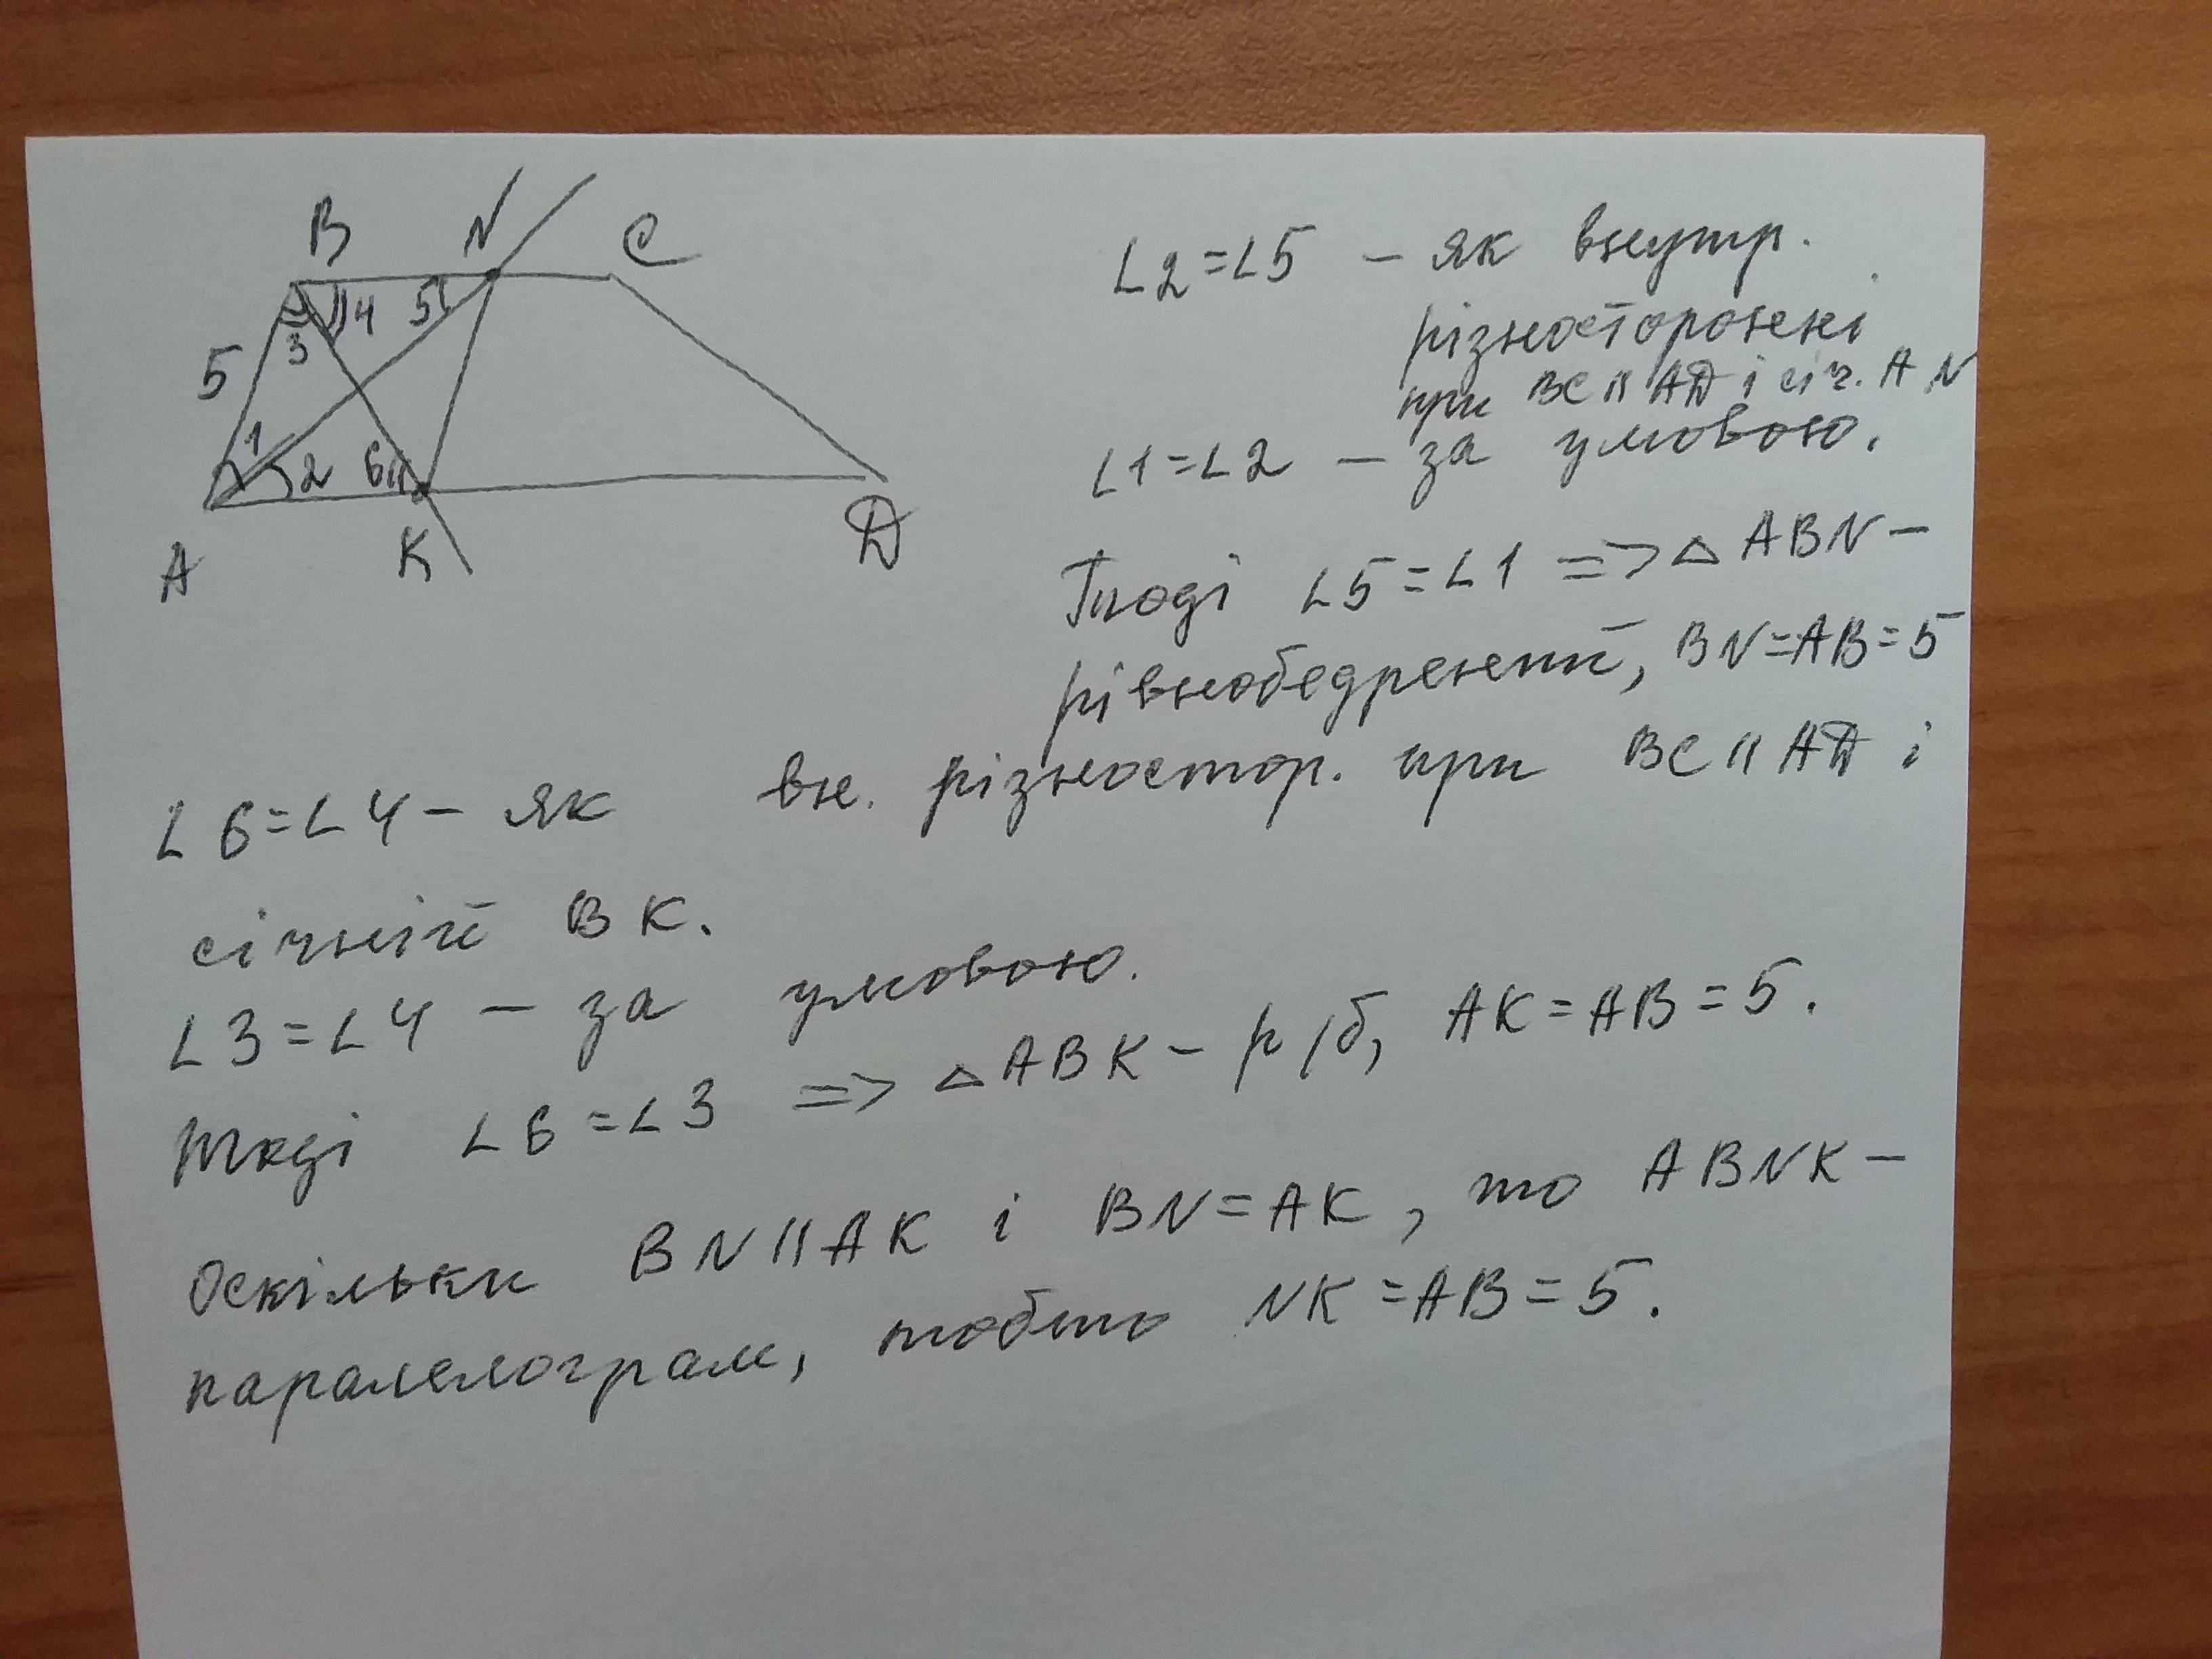 B N C
5 3 4 5
1 2 6
A K D
∠2=∠5 – як внутр.
різносторонні
при BC || AD і січ. AN
∠1=∠2 – за умовою.
Тоді ∠5=∠1 => △ ABN –
рівнобедрений, BN=AB=5
∠6=∠4 – як вн. різностор. при BC || AD і
січній BK.
∠3=∠4 – за умовою.
Тоді ∠6=∠3 => △ ABK – р/б, AK=AB=5.
Оскільки BN || AK і BN=AK, то ABNK –
паралелограм, тобто NK=AB=5.